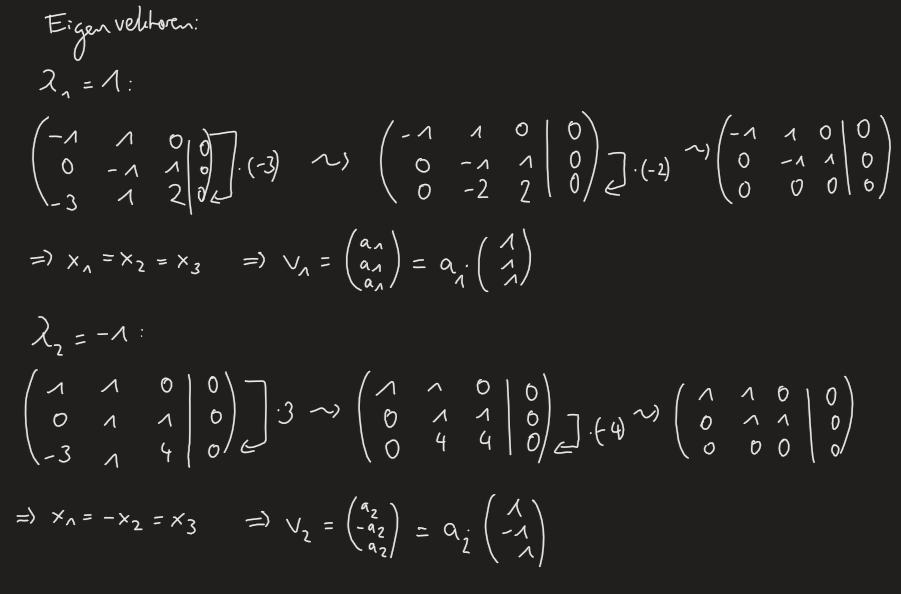 Eigenvektoren:
λ₁ = 1:
( -1 1 0 | 0 ; 0 -1 1 | 0 ; -3 1 2 | 0 ) ·(-3) ~> ( -1 1 0 | 0 ; 0 -1 1 | 0 ; 0 -2 2 | 0 ) ·(-2) ~> ( -1 1 0 | 0 ; 0 -1 1 | 0 ; 0 0 0 | 0 )
=> x₁ = x₂ = x₃ => v₁ = ( a₁ ; a₁ ; a₁ ) = a₁ · ( 1 ; 1 ; 1 )
λ₂ = -1:
( 1 1 0 | 0 ; 0 1 1 | 0 ; -3 1 4 | 0 ) ·3 ~> ( 1 1 0 | 0 ; 0 1 1 | 0 ; 0 4 4 | 0 ) ·(-4) ~> ( 1 1 0 | 0 ; 0 1 1 | 0 ; 0 0 0 | 0 )
=> x₁ = -x₂ = x₃ => v₂ = ( a₂ ; -a₂ ; a₂ ) = a₂ · ( 1 ; -1 ; 1 )